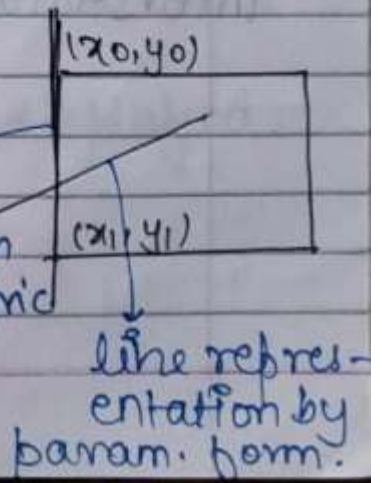 (x0, y0)
(x1, y1)
line repres-
entation by
param. form.